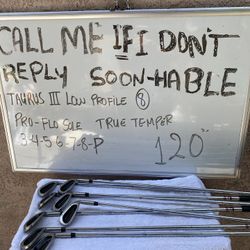 CALL ME IF I DON'T
REPLY SOON-HABLE
TAURUS III LOW PROFILE 8
PRO-FLO SOLE TRUE TEMPER
3-4-5-6-7-8-P 120